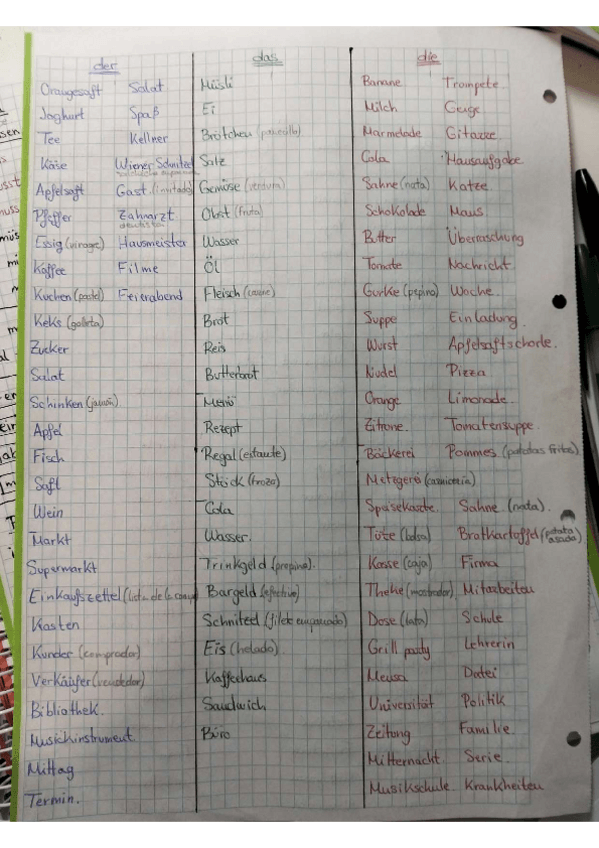 der das die
Orangesaft Salat Müsli Banane Trompete
Joghurt Spaß Ei Milch Geige
Tee Kellner Brötchen (panecillo) Marmelade Gitarre
Käse Wiener Schnitzel Salz Cola Hausaufgabe
Apfelsaft Gast (invitado) Gemüse (verdura) Sahne (nata) Katze
Pfeffer Zahnarzt Obst (fruta) Schokolade Maus
dentista
Essig (vinagre) Hausmeister Wasser Butter Überraschung
Kaffee Filme Öl Tomate Nachricht
Kuchen (pastel) Feierabend Fleisch (carne) Gurke (pepino) Woche
Keks (galleta) Brot Suppe Einladung
Zucker Reis Wurst Apfelsaftschorle
Salat Butterbrot Nudel Pizza
Schinken (jamón) Menü Orange Limonade
Apfel Rezept Zitrone Tomatensuppe
Fisch Regal (estante) Bäckerei Pommes (patatas fritas)
Saft Stück (trozo) Metzgerei (carnicería)
Wein Cola Speisekarte Sahne (nata)
Markt Wasser Tüte (bolsa) Bratkartoffel (patata asada)
Supermarkt Trinkgeld (propina) Kasse (caja) Firma
Einkaufszettel (lista de la compra) Bargeld (efectivo) Theke (mostrador) Mitarbeiten
Kasten Schnited (filete empanado) Dose (lata) Schule
Kunder (comprador) Eis (helado) Grill party Lehrerin
Verkäufer (vendedor) Kaffeehaus Mensa Datei
Bibliothek Sandwich Universität Politik
Musichinstrument Büro Zeitung Familie
Mittag Mitternacht Serie
Termin Musikschule Krankheiten